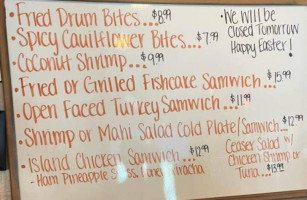 •Fried Drum Bites...$8.99
•Spicy Cauliflower Bites...$7.99
•Coconut Shrimp...$9.99
•Fried or Grilled Fishcare Samwich...$15.99
•Open Faced Turkey Samwich...$11.99
•Shrimp or Mahi Salad Cold Plate/Samwich...$12.99
•Island Chicken Samwich...$12.99
-Ham Pineapple Swiss, Honey Sriracha
•We will be
Closed Tomorrow
Happy Easter!
Ceaser Salad w/
Chicken Shrimp or
Tuna...$13.99